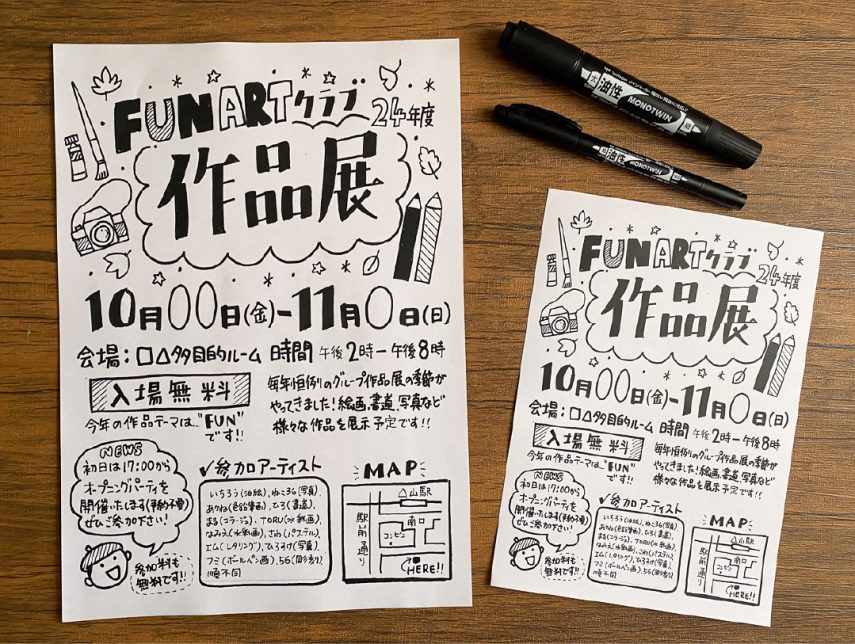 FUN ARTクラブ
24年度
作品展
10月00日(金)-11月0日(日)
会場:□△多目的ルーム 時間 午後2時ー午後8時
入場無料
今年の作品テーマは、"FUN"
です!!
毎年恒例のグループ作品展の季節が
やってきました!絵画、書道、写真など
様々な作品を展示予定です!!
NEWS
初日は17:00から
オープニングパーティを
開催いたします(予約不要)
ぜひご参加下さい!
参加料も
無料です!!
✓参加アーティスト
いちろう(油絵)、ねこ3る(写真)、
あかね(色鉛筆画)、ひろ(書道)、
まる(コラージュ)、TORU(水彩画)、
なみえ(水彩画)、さわ(パステル)、
エム(レタリング)、ひろすけ(写真)、
フミ(ボールペン画)、56(彫刻)
順不同
MAP
△山駅
駅前通り
南口
コンビニ
HERE!!
太 油性 MONOTWIN
油性 MONOTWIN
FUN ARTクラブ
24年度
作品展
10月00日(金)-11月0日(日)
会場:□△多目的ルーム 時間 午後2時ー午後8時
入場無料
今年の作品テーマは、"FUN"
です!!
毎年恒例のグループ作品展の季節が
やってきました!絵画、書道、写真など
様々な作品を展示予定です!!
NEWS
初日は17:00から
オープニングパーティを
開催いたします(予約不要)
ぜひご参加下さい!
参加料も
無料です!!
✓参加アーティスト
いちろう(油絵)、ねこ3る(写真)、
あかね(色鉛筆画)、ひろ(書道)、
まる(コラージュ)、TORU(水彩画)、
なみえ(水彩画)、さわ(パステル)、
エム(レタリング)、ひろすけ(写真)、
フミ(ボールペン画)、56(彫刻)
順不同
MAP
△山駅
駅前通り
南口
コンビニ
HERE!!